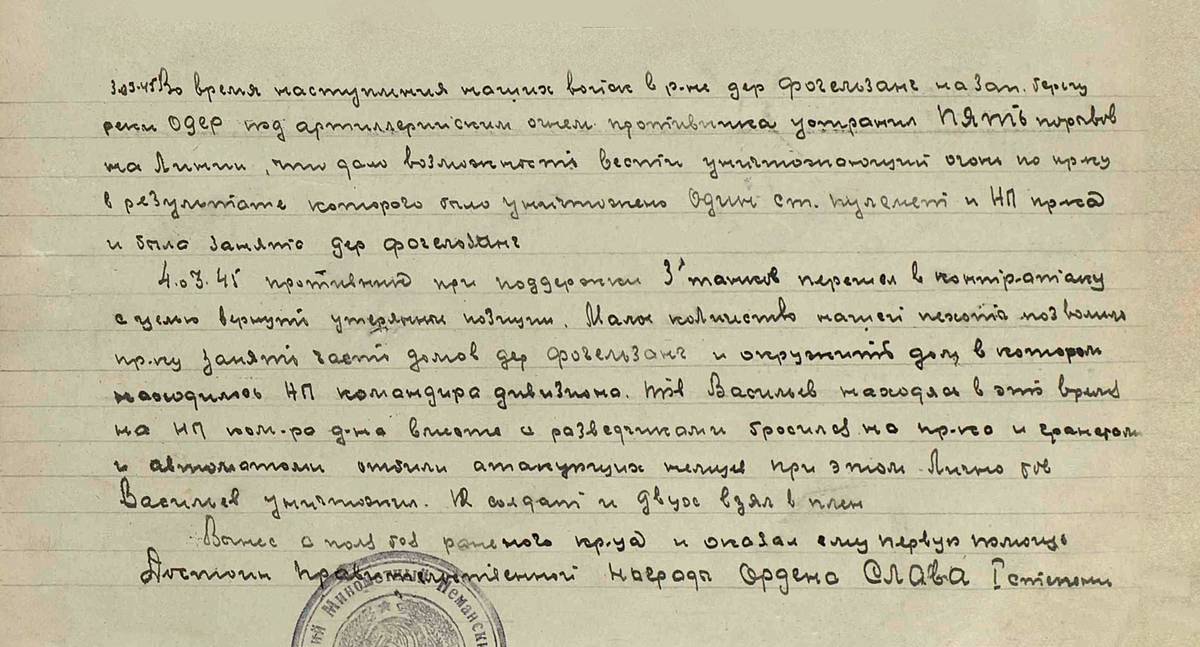 3.03.45 Во время наступления наших войск в р-не дер Фогельзанг на зап. берегу
реки ОДЕР под артиллерийским огнем противника устранил ПЯТЬ порывов
на Линии, что дало возможность вести уничтожающий огонь по пр-ку
в результате которого было уничтожено Один ст. пулемет и НП пр-ка
и была занято дер Фогельзанг
4.03.45 противник при поддержки 3х танков перешел в контр-атаку
с целью вернуть утерянные позиции. Малое количество нашей пехоты позволило
пр-ку занять часть домов дер Фогельзанг и окружить дом, в котором
находилось НП командира дивизиона. тов Васильев находясь в это время
на НП ком-ра д-на вместе с разведчиками бросился на пр-ка и гранатами
и автоматами отбили атакующих немцев при этом Лично тов
Васильев уничтожил. 12 солдат и двуос взял в плен
Вынес с поля боя раненого кр-ца и оказал ему первую помощь
Достоин правительственной награды Ордена СЛАВА I степени
ский Минометный Неманский